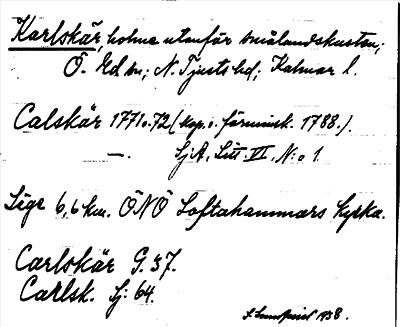 Karlskär, holme utanför Smålandskusten;
Ö. Ed sn; N. Tjusts hd; Kalmar l.
Calskär 1771o.72 (kop. i förminsk. 1788.).
—. SjA, Litt. VI, N:o 1.
Läge 6,6 km. ÖNÖ Loftahammars kyrka.
Carlskär G. 37.
Carlsk. Sj: 64.
1938.